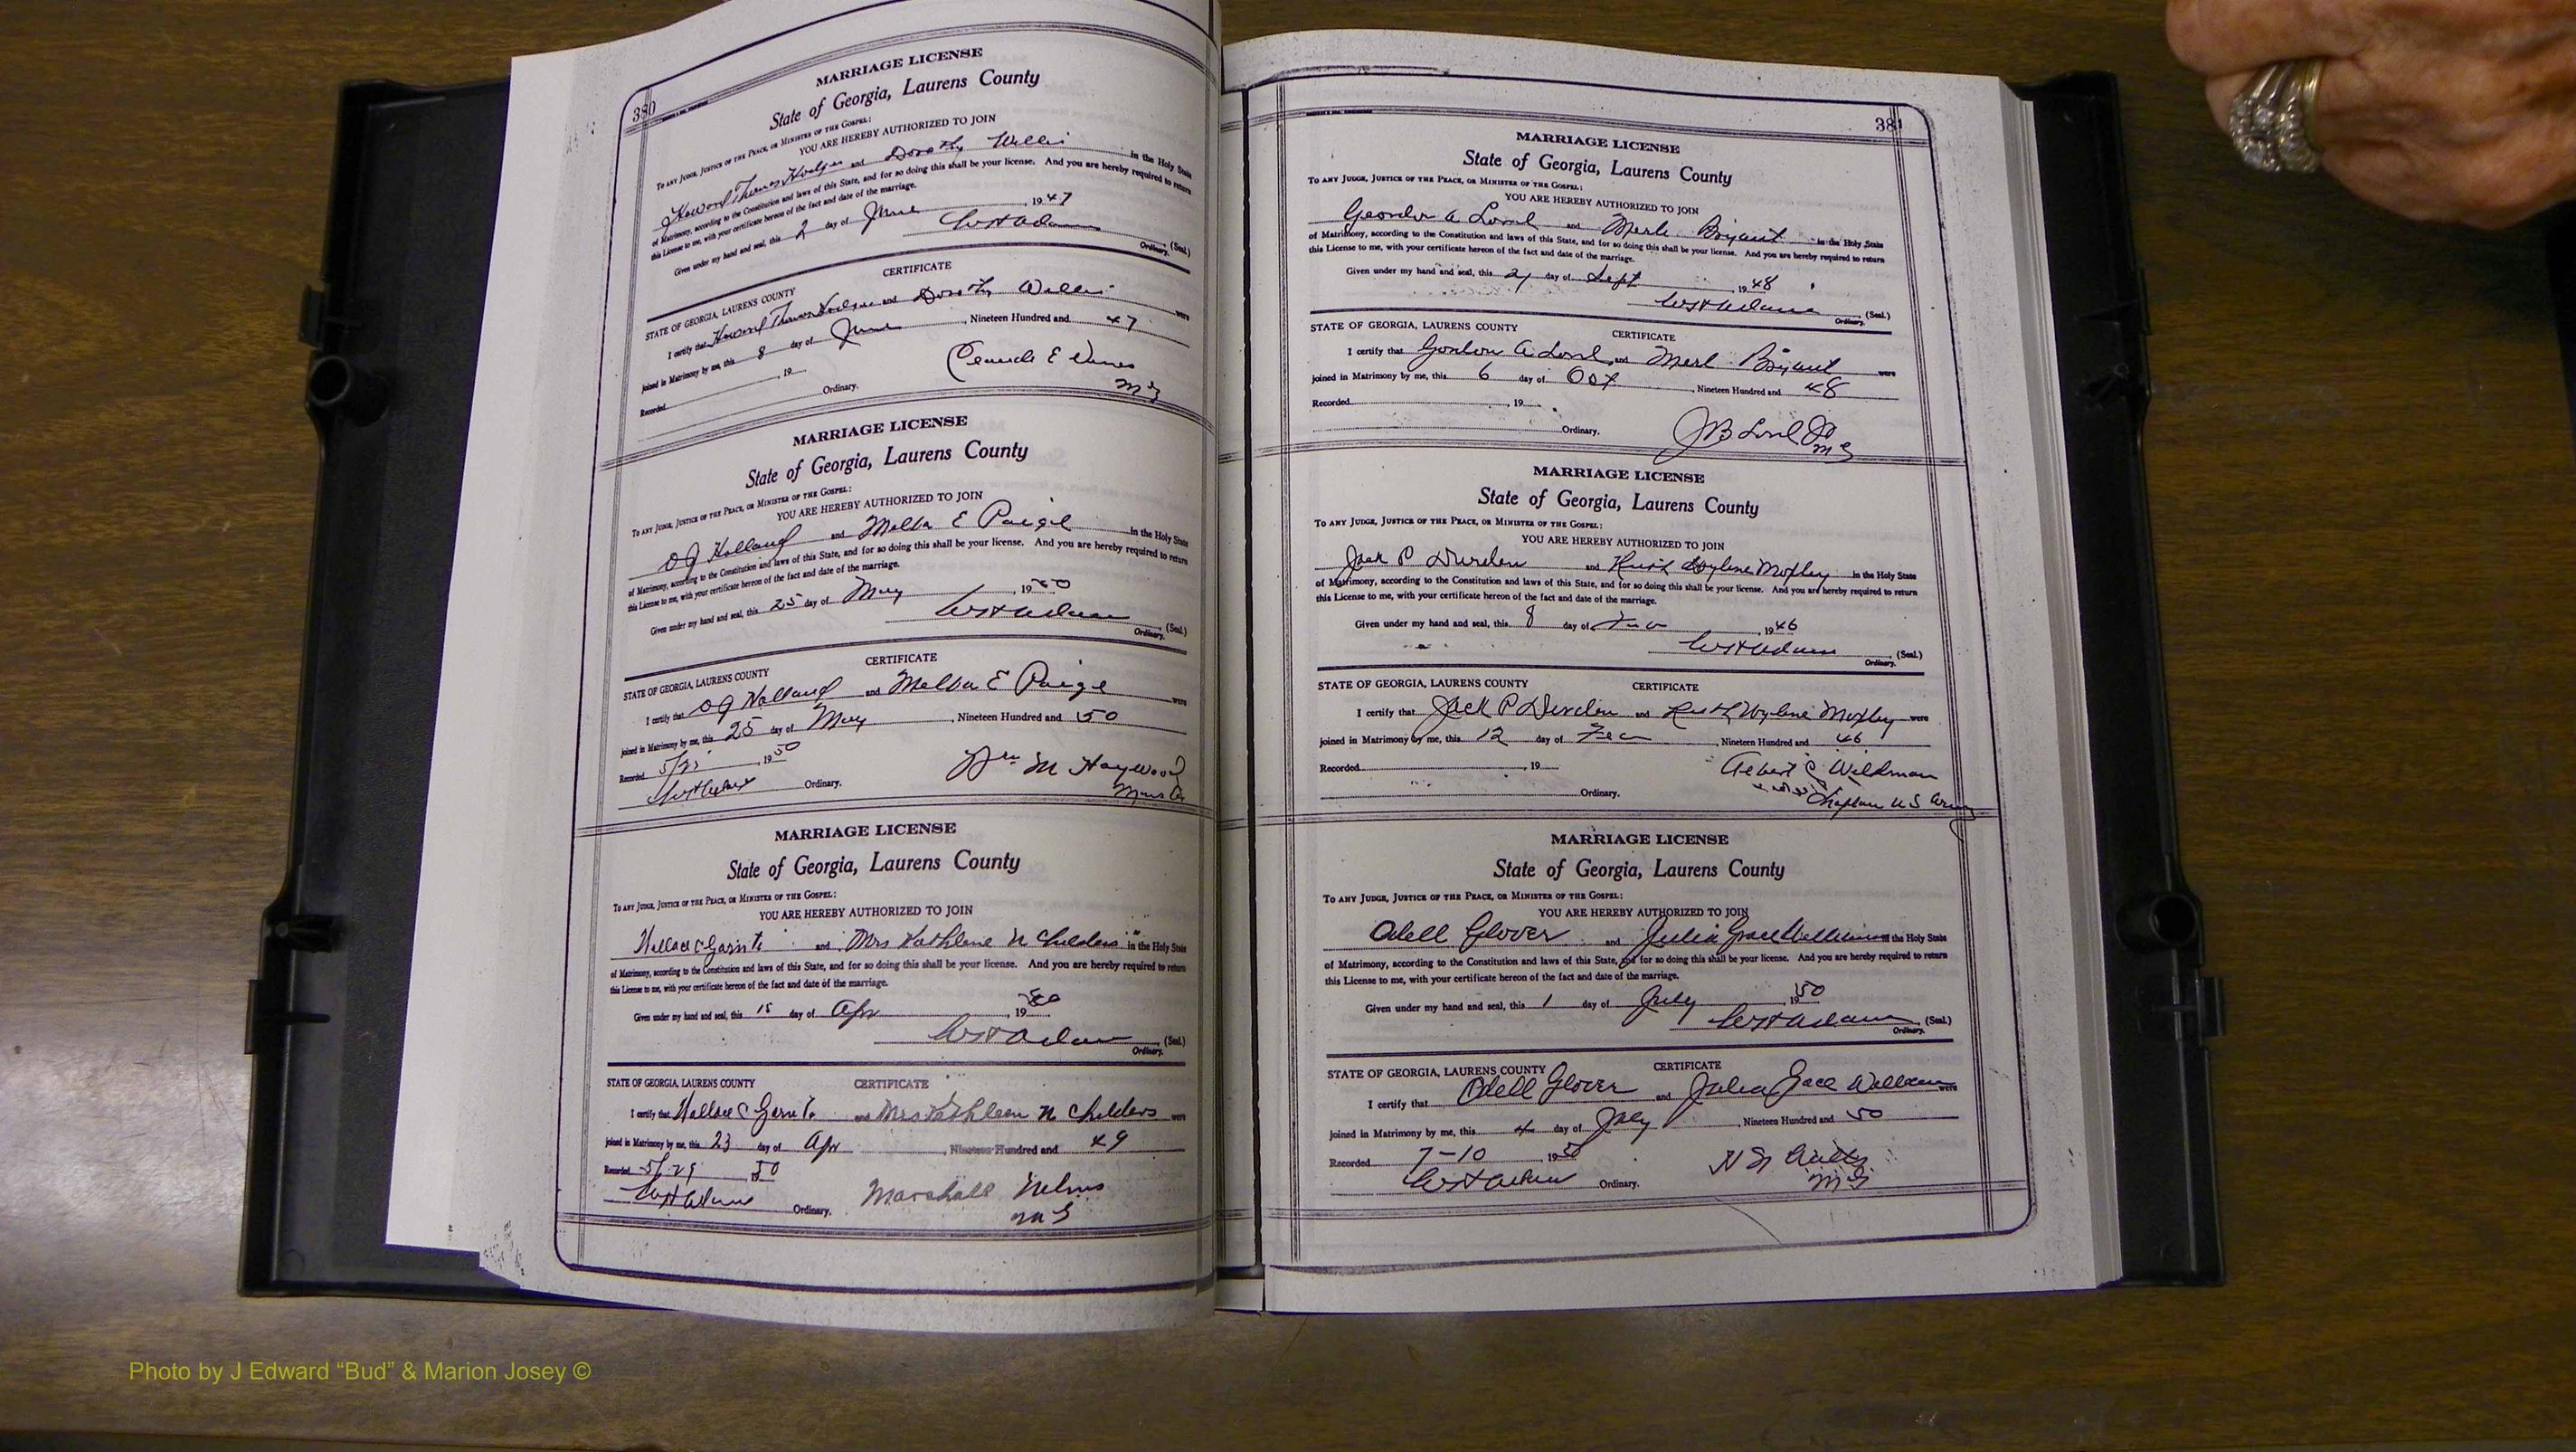 380
MARRIAGE LICENSE
State of Georgia, Laurens County
To any Judge, Justice of the Peace, or Minister of the Gospel:
YOU ARE HEREBY AUTHORIZED TO JOIN
Howard Thomas and Dorothy Willis in the Holy State
of Matrimony, according to the Constitution and laws of this State, and for so doing this shall be your license. And you are hereby required to return
this License to me, with your certificate hereon of the fact and date of the marriage.
Given under my hand and seal, this 2 day of June, 1947
W H Adams (Seal)
Ordinary.
CERTIFICATE
STATE OF GEORGIA, LAURENS COUNTY
I certify that Howard Thomas and Dorothy Willis were
joined in Matrimony by me, this 8 day of June, Nineteen Hundred and 47
Recorded , 19
Claude E
Ordinary.
M G
MARRIAGE LICENSE
State of Georgia, Laurens County
To any Judge, Justice of the Peace, or Minister of the Gospel:
YOU ARE HEREBY AUTHORIZED TO JOIN
O J Holland and Melba E Paige in the Holy State
of Matrimony, according to the Constitution and laws of this State, and for so doing this shall be your license. And you are hereby required to return
this License to me, with your certificate hereon of the fact and date of the marriage.
Given under my hand and seal, this 25 day of May, 1950
W H Adams (Seal)
Ordinary.
CERTIFICATE
STATE OF GEORGIA, LAURENS COUNTY
I certify that O J Holland and Melba E Paige were
joined in Matrimony by me, this 25 day of May, Nineteen Hundred and 50
Recorded , 1950
Wm M Haywood
W H Adams Ordinary.
MARRIAGE LICENSE
State of Georgia, Laurens County
To any Judge, Justice of the Peace, or Minister of the Gospel:
YOU ARE HEREBY AUTHORIZED TO JOIN
Wallace C and Mrs Kathlene N Childers in the Holy State
of Matrimony, according to the Constitution and laws of this State, and for so doing this shall be your license. And you are hereby required to return
this License to me, with your certificate hereon of the fact and date of the marriage.
Given under my hand and seal, this 15 day of Apr, 19
W H Adams (Seal)
Ordinary.
STATE OF GEORGIA, LAURENS COUNTY CERTIFICATE
I certify that Wallace C and Mrs Kathleen N Childers were
joined in Matrimony by me, this 23 day of Apr, Nineteen Hundred and 49
Recorded 5/29 50
W H Adams Ordinary.
Marshall Nelms
M G
381
MARRIAGE LICENSE
State of Georgia, Laurens County
To any Judge, Justice of the Peace, or Minister of the Gospel:
YOU ARE HEREBY AUTHORIZED TO JOIN
A Lord and Merle Bryant in the Holy State
of Matrimony, according to the Constitution and laws of this State, and for so doing this shall be your license. And you are hereby required to return
this License to me, with your certificate hereon of the fact and date of the marriage.
Given under my hand and seal, this 21 day of Sept, 1948
W H Adams (Seal)
Ordinary.
STATE OF GEORGIA, LAURENS COUNTY CERTIFICATE
I certify that Gordon A Lord and Merl Bryant were
joined in Matrimony by me, this 6 day of Oct, Nineteen Hundred and 48
Recorded , 19
Ordinary.
J B Lord
M G
MARRIAGE LICENSE
State of Georgia, Laurens County
To any Judge, Justice of the Peace, or Minister of the Gospel:
YOU ARE HEREBY AUTHORIZED TO JOIN
Jack P Durden and Ruth Wylene Moxley in the Holy State
of Matrimony, according to the Constitution and laws of this State, and for so doing this shall be your license. And you are hereby required to return
this License to me, with your certificate hereon of the fact and date of the marriage.
Given under my hand and seal, this 8 day of , 1946
W H Adams (Seal)
Ordinary.
STATE OF GEORGIA, LAURENS COUNTY CERTIFICATE
I certify that Jack P Durden and Ruth Wylene Moxley were
joined in Matrimony by me, this 12 day of , Nineteen Hundred and 46
Recorded , 19
Albert C Wildman
Chaplain U S Army
Ordinary.
MARRIAGE LICENSE
State of Georgia, Laurens County
To any Judge, Justice of the Peace, or Minister of the Gospel:
YOU ARE HEREBY AUTHORIZED TO JOIN
Odell Glover and Julia Grace in the Holy State
of Matrimony, according to the Constitution and laws of this State, and for so doing this shall be your license. And you are hereby required to return
this License to me, with your certificate hereon of the fact and date of the marriage.
Given under my hand and seal, this 1 day of July, 1950
W H Adams (Seal)
Ordinary.
STATE OF GEORGIA, LAURENS COUNTY CERTIFICATE
I certify that Odell Glover and Julia Grace were
joined in Matrimony by me, this 4 day of July, Nineteen Hundred and 50
Recorded 7-10 1950
W H Adams Ordinary.
M G
Photo by J Edward “Bud” & Marion Josey ©